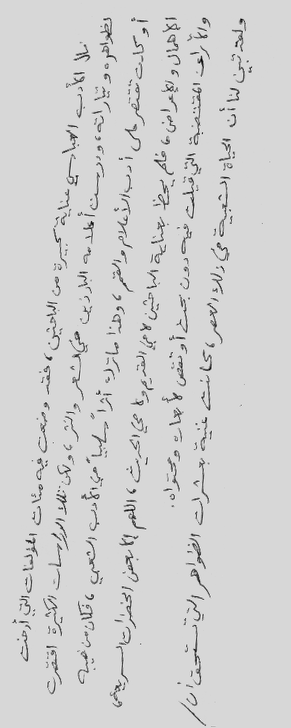 نال الأدب العباسي عناية كبيرة من الباحثين، فقد وضعت فيه مئات المؤلفات التي أرخت
لظواهره وتياراته، ودرست أعلامه البارزين في الشعر والنثر، ولكن تلك الدراسات الكثيرة افتقرت
أو كانت تقتصر على أدب الأعلام والقمم، وهذا ما ترك أثراً سلبياً في الأدب الشعبي، فكان نصيبه
الإهمال والإعراض، فلم يحظ بعناية الباحثين لا في القديم ولا في الحديث، اللهم إلا بعض الخطرات السريعة،
والآراء المقتضبة التي قيلت فيه دون بحث أو تقص لأبعاده ومحتواه.
ولقد تبين لنا أن الحياة الشعبية في ذلك العصر، كانت غنية بعشرات الظواهر التي تستحق أن/